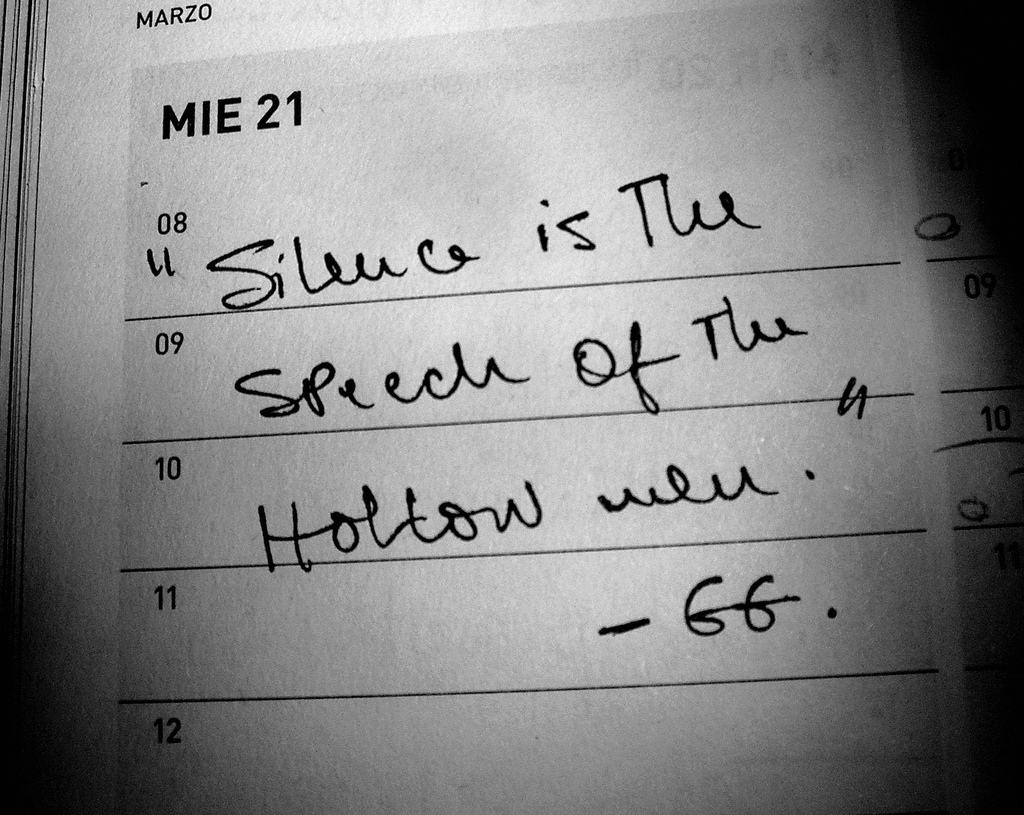 MARZO
MIE 21
08
"Silence is The
09
Speech of The
10
Hollow men."
11
- GG.
12
09
10
11